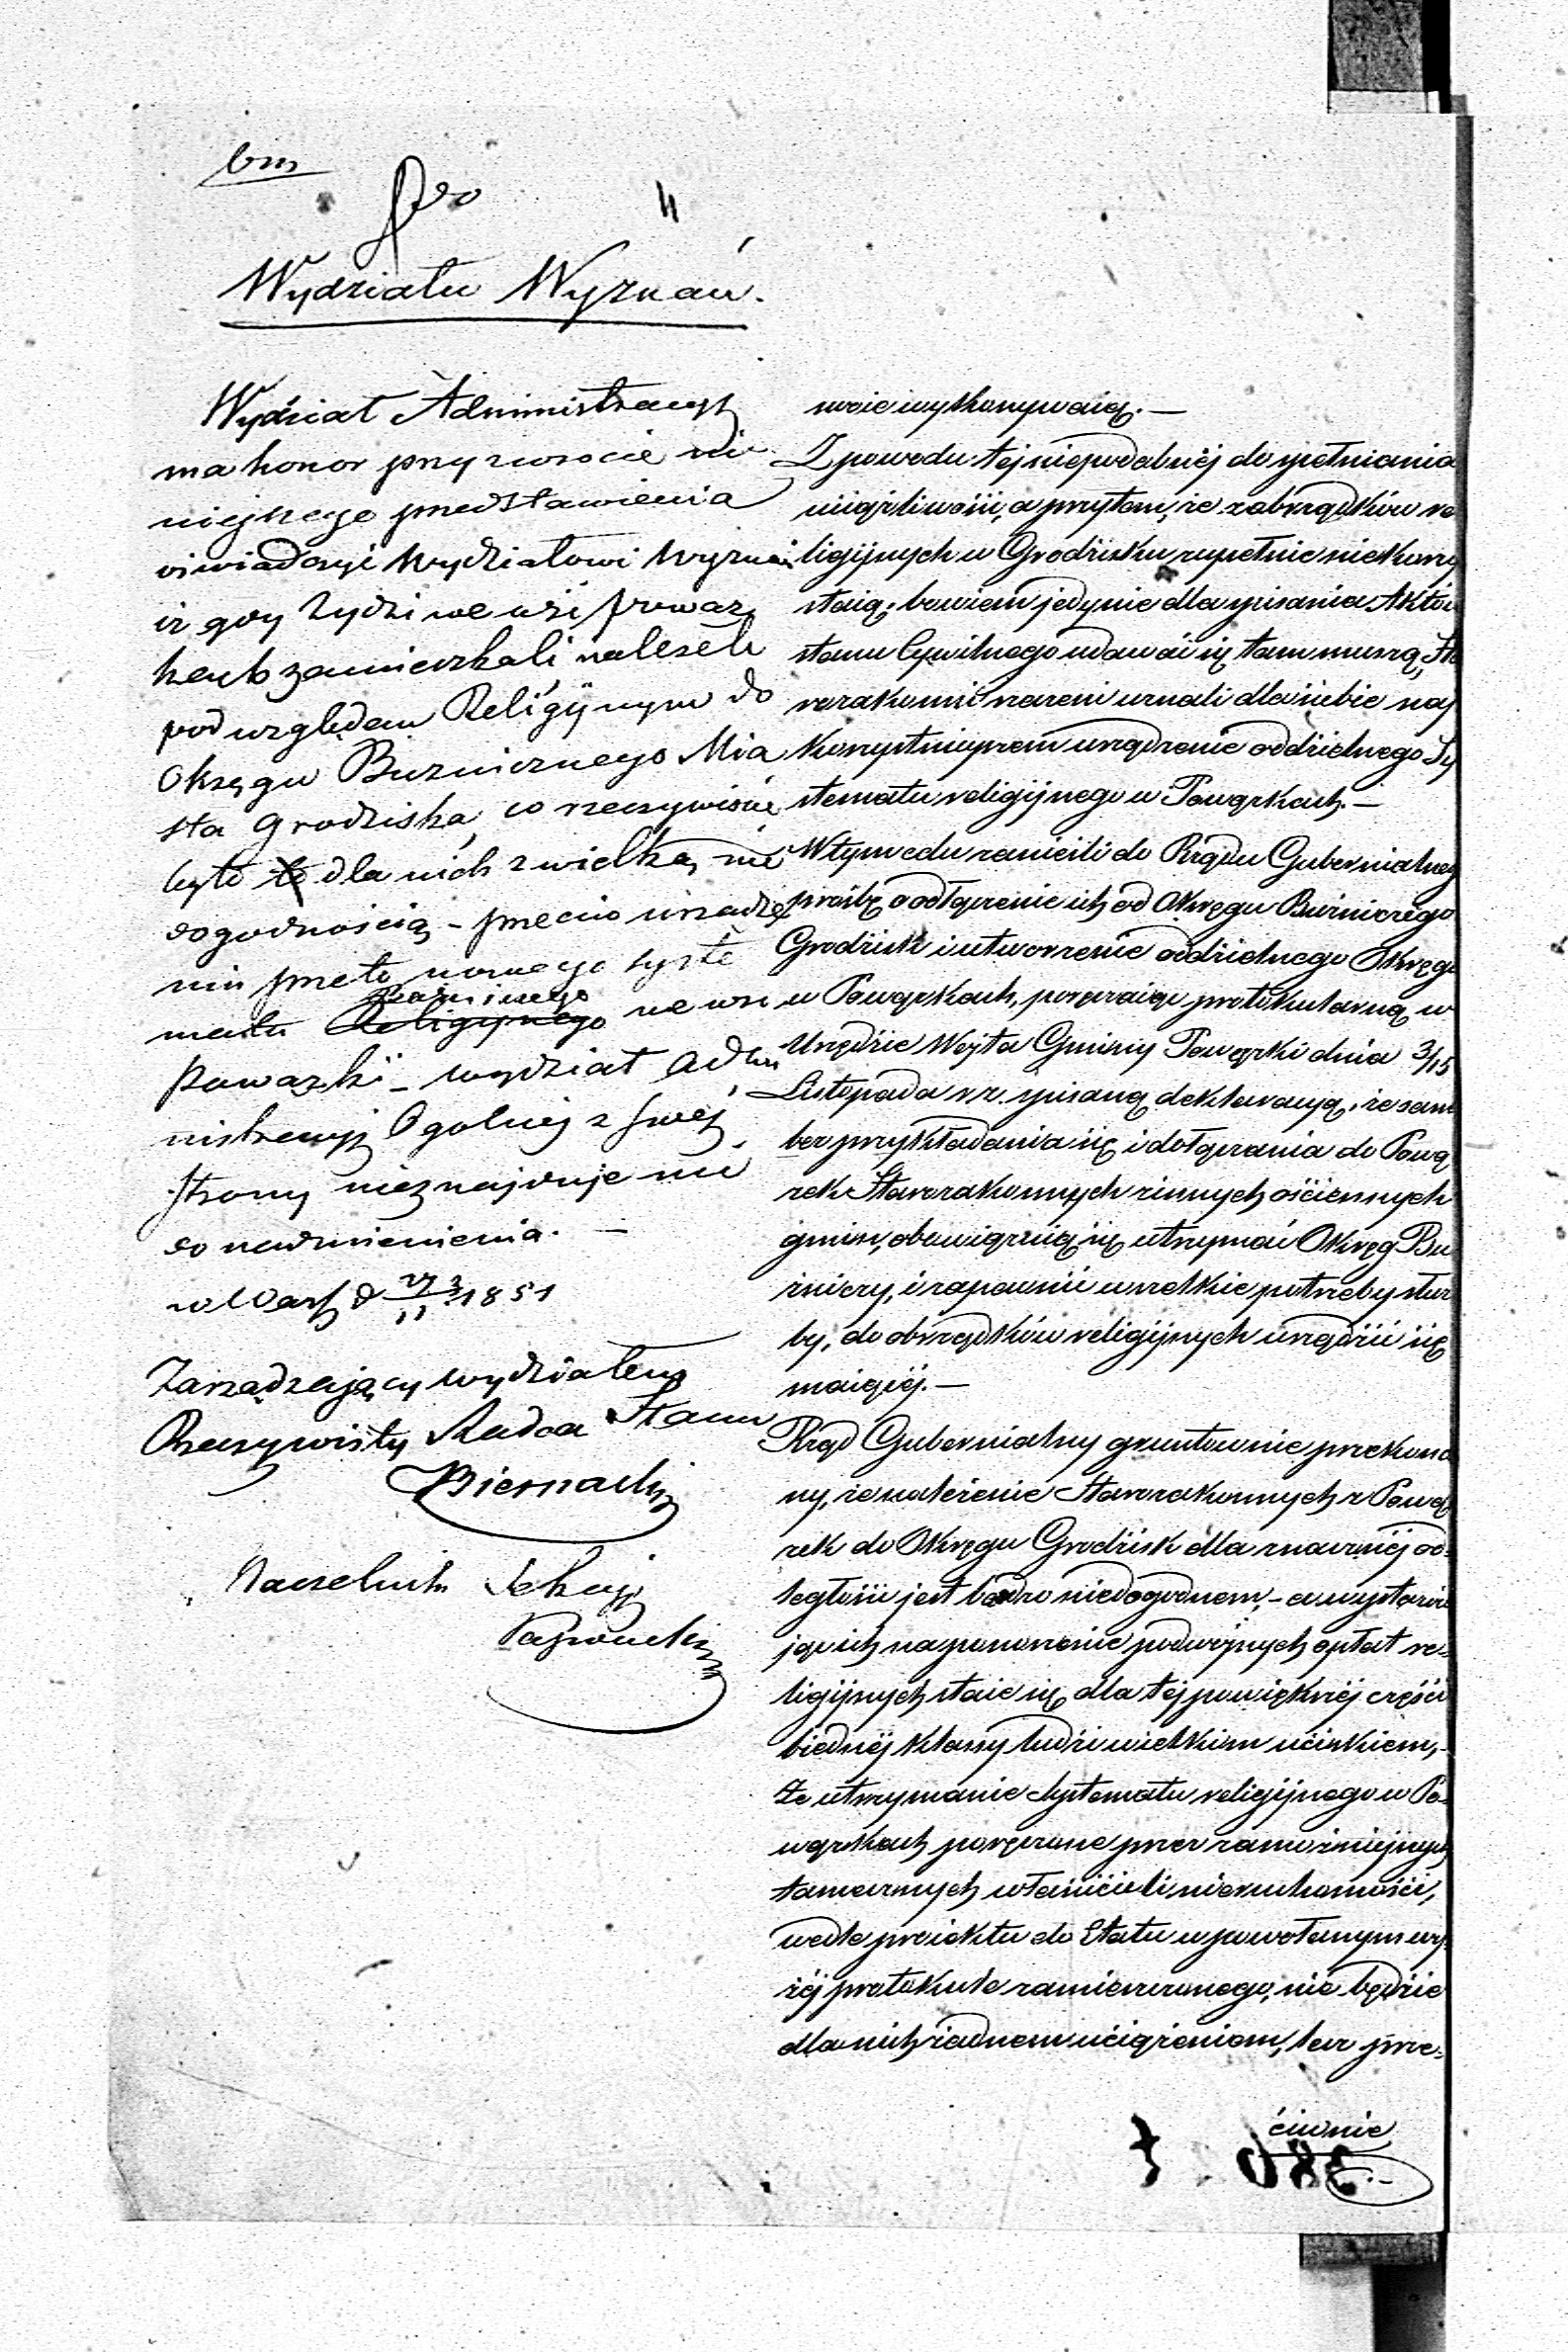 bm
Do
Wydziału Wyznań.
Wydział Administracyi
ma honor przy zwrocie ni
niejszego przedstawienia
oświadczyć Wydziałowi Wyznań
iż gdy Żydzi we wsi Powąz
kach zamieszkali należeli
pod względem Religijnym do
Okręgu Buzniczego Mia
sta Grodziska, co rzeczywiście
było to dla nich z wielką nie
dogodnością - przeciw urządze
niu przeto nowego syste
matu Religijnego Buźniczego we wsi
Powązki - Wydział Admi
nistracyi Ogólnej z swej
strony nieznajduje nic
do nadmienienia. —
w Warsz d 1851
Zarządzający Wydziałem
Rzeczywisty Radca Stanu
Biernacki
Naczelnik Sekcyi
woie wykonywaią. —
Z powodu tej niepodobnéj do spełniania
uciążliwości, a przytem, że z obrządków re
ligijnych w Grodzisku zupełnie niekorzy
staią; bowiem jedynie dla spisania Aktów
stanu Cywilnego udawać się tam muszą, Sta
rozakonni nareni uznali dla siebie naj
korzystniejszem urządzenie oddzielnego Sy
stematu religijnego w Powązkach. —
W tym celu zanieśli do Rządu Gubernialnego
prośbę o odłączenie ich od Okręgu Buźniczego
Grodzisk i utworzenie oddzielnego Okręgu
w Powązkach, poręczaiąc protokularną w
Urzędzie Wójta Gminy Powązki dnia 3/15
Listopada r. z. spisaną deklaracyą, że sami
bez przykładania się i dołączania do Pową
zek Starozakonnych z innych ościennych
gmin, obowiązuią się utrzymać Okręg Bu
źniczy, i zapewnić wszelkie potrzeby służ
by, do obrządków religijnych urządzić się
maiącéj. —
Rząd Gubernialny gruntownie przekona
ny, że należenie Starozakonnych z Pową
zek do Okręgu Grodzisk dla znacznéj od=
ległości jest bardzo niedogodnem, - a wystawia
jąc ich na ponoszenie podwójnych opłat re=
ligijnych staie się dla tej po większéj części
biednéj klassy ludzi wielkim uciskiem, -
że utrzymanie Systematu religijnego w Po=
wązkach poręczone przez zamożniejszych
tamecznych właścicieli nieruchomości,
wedle proiektu do Etatu w powołanym wy
żéj protokule zamieszczonego, nie będzie
dla nich żadnem uciążeniem, lecz prze=
ciwnie